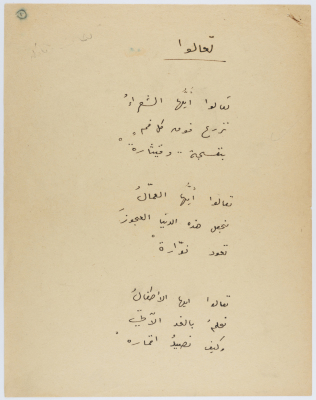 تعالوا
تعالوا أيُّها الشعراءُ
نزرع فوق كل فمٍ
بنفسجةً .. وقيثارةْ
تعالوا أيُّها العمّالُ
نجعل هذه الدنيا العجوزَ
تعود نوّارةْ
تعالوا أيها الأطفالُ
نحلمُ بالغد الآتي
وكيف نصيدُ أقمارهْ